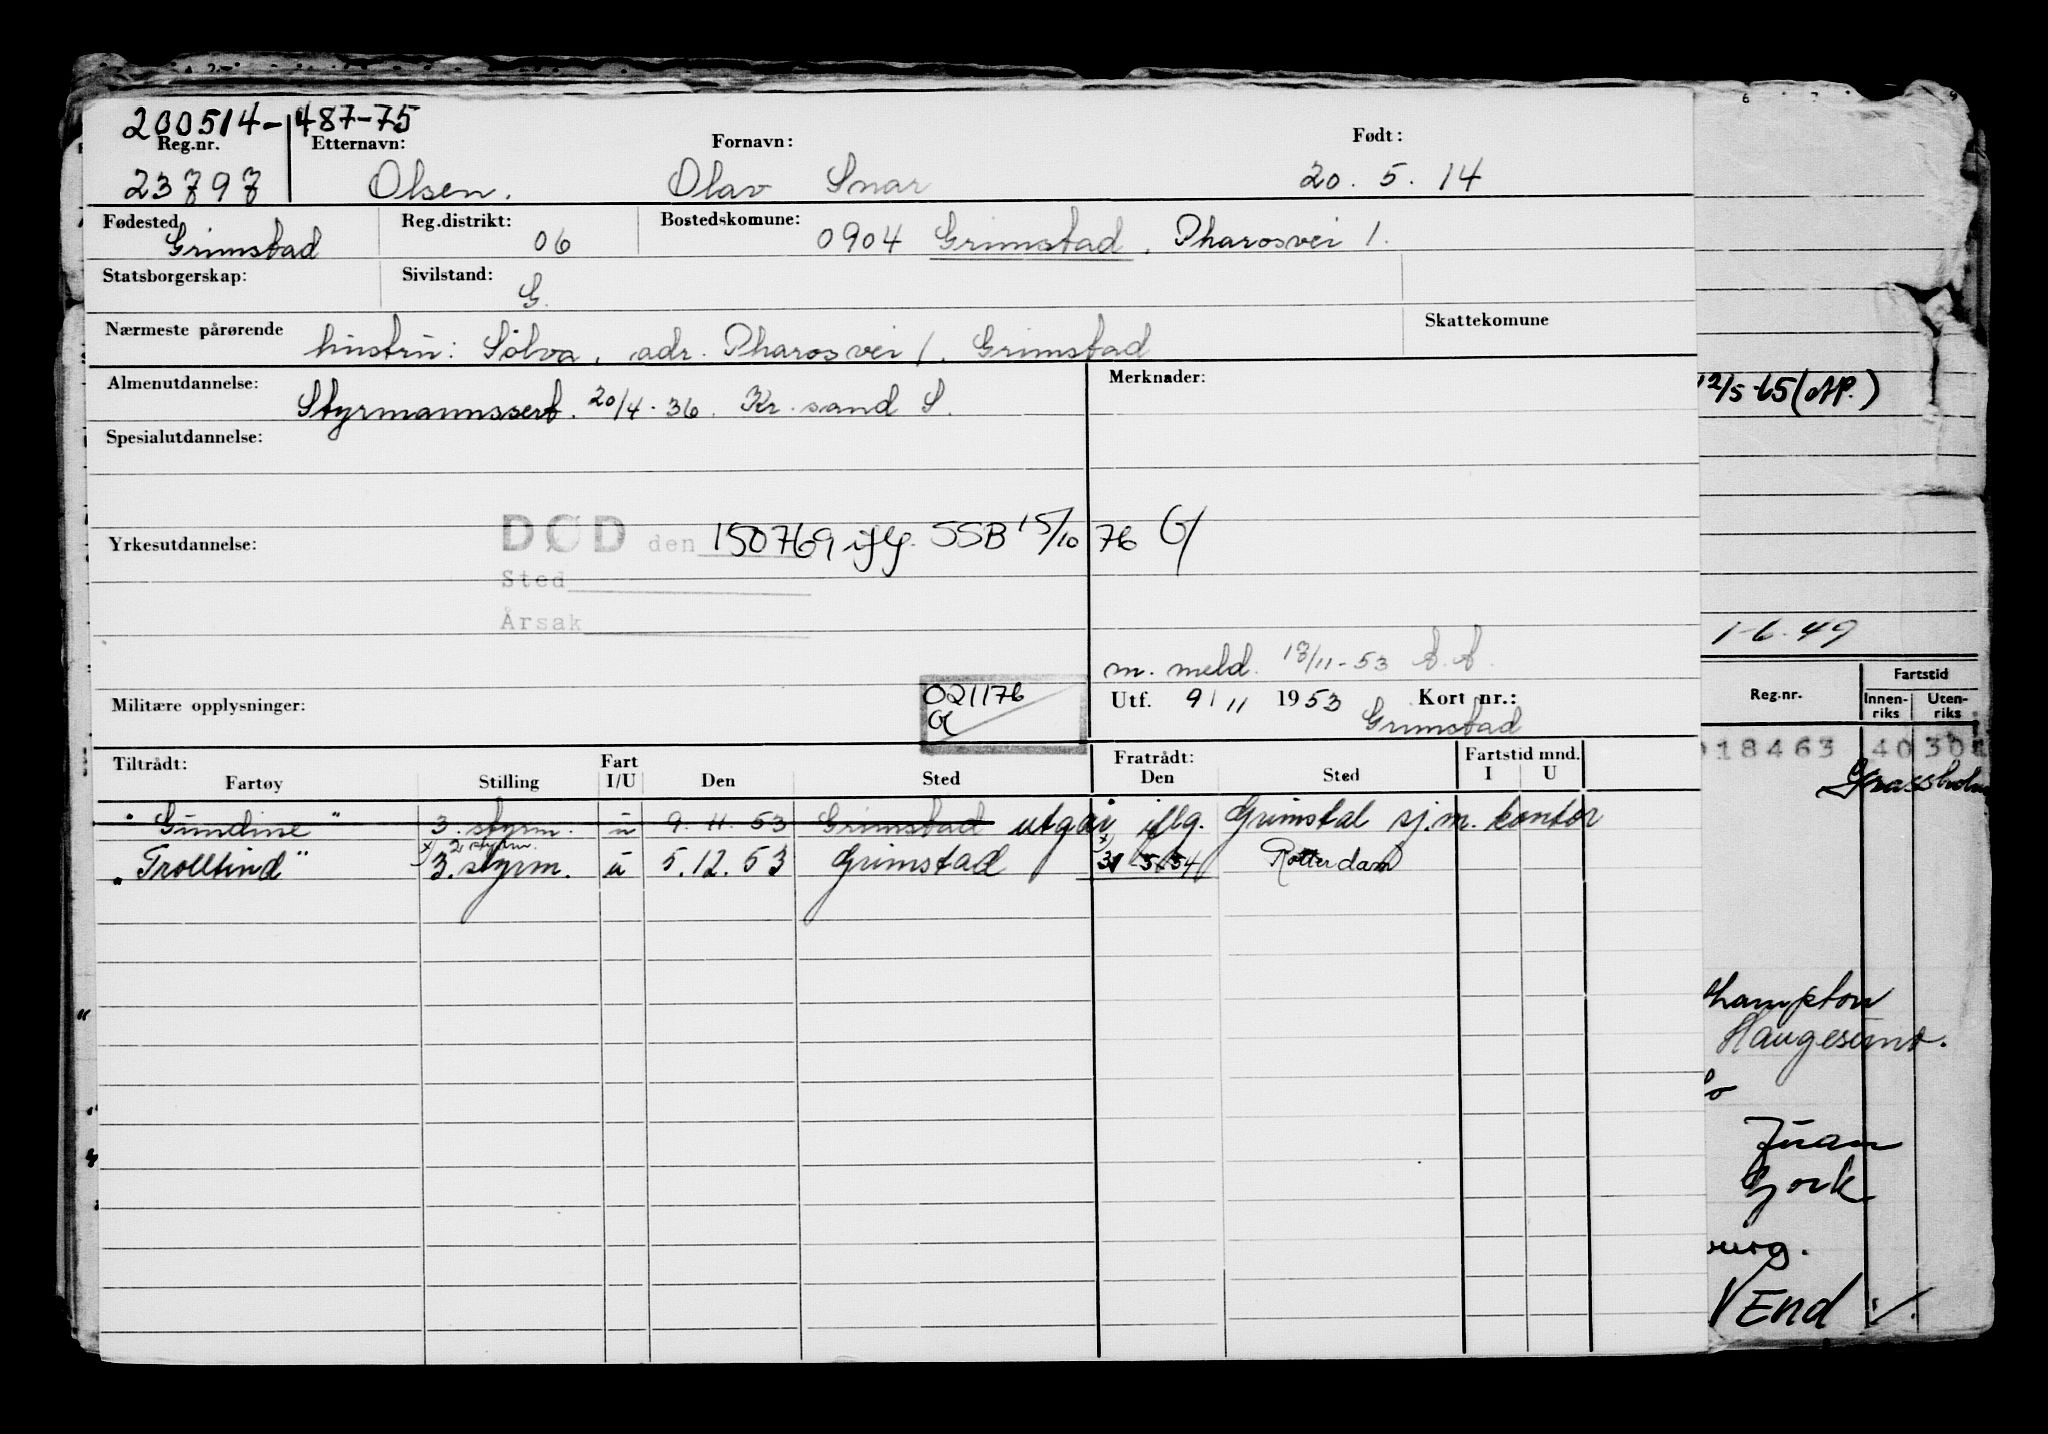 200514-487-75
Reg.nr. Etternavn: Fornavn: Født:
23797 Olsen. Olav Snar 20. 5. 14
Fødested Reg.distrikt: Bostedskomune:
Grimstad 06 0904 Grimstad, Pharosvei 1.
Statsborgerskap: Sivilstand:
G.
Nærmeste pårørende Skattekomune
hustru: Sólva, adr. Pharosvei 1. Grimstad
Almenutdannelse: Merknader:
Styrmannssert. 20/4-36. Kr.sand S.
12/5-65
Spesialutdannelse:
Yrkesutdannelse:
DØD den 150769 iflg. SSB 15/10 76
Sted
Årsak
1-6.49
m. meld. 18/11-53
Militære opplysninger:
021176
Utf. 9/11 1953 Kort nr.:
Grimstad
Reg.nr. Fartstid
Innenriks Utenriks
018463 40
Tiltrådt: Fratrådt: Fartstid mnd.
Fartøy Stilling Fart I/U Den Sted Den Sted I U
"Gundine" 3. styrm. u 9.11.53 Grimstad utgår iflg. Grimstad sj.m. kontor
x) 2 styrm. x)
"Trolltind" 3. styrm. u 5.12.53 Grimstad 31 5 54 Rotterdam
Grassholm
hampton
Haugesund.
Juan
York
burg.
End